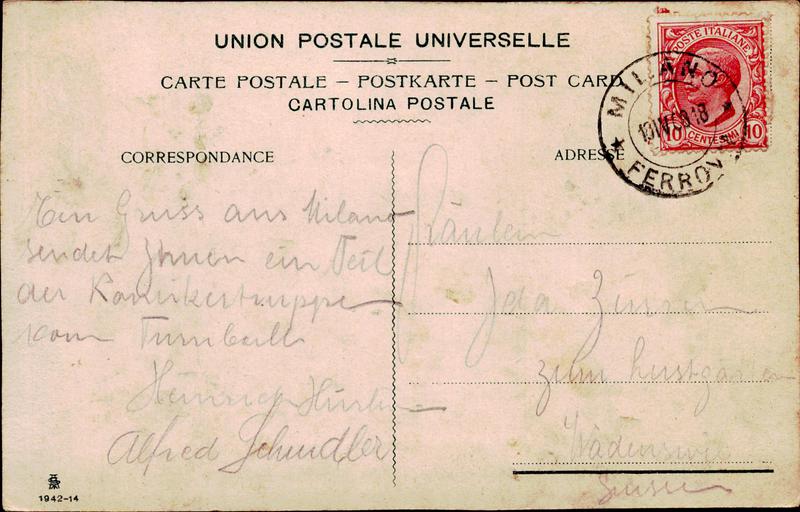 UNION POSTALE UNIVERSELLE
CARTE POSTALE – POSTKARTE – POST CARD
CARTOLINA POSTALE
POSTE ITALIANE
10 CENTESIMI 10
MILANO
FERROVIA
CORRESPONDANCE
ADRESSE
Ein Gruss aus Milano
sendet Ihnen ein Teil
der
vom Turnball
Heinrich
Alfred Schindler
Fräulein
Ida
zum Lustgarten
Wädenswil
Suisse
1942-14